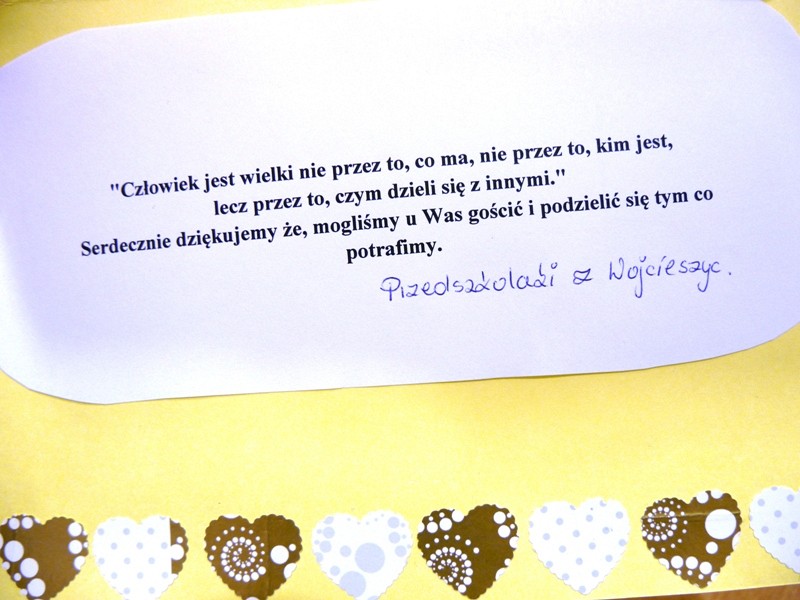 "Człowiek jest wielki nie przez to, co ma, nie przez to, kim jest,
lecz przez to, czym dzieli się z innymi."
Serdecznie dziękujemy że, mogliśmy u Was gościć i podzielić się tym co
potrafimy.
Przedszkolaki z Wojcieszyc.